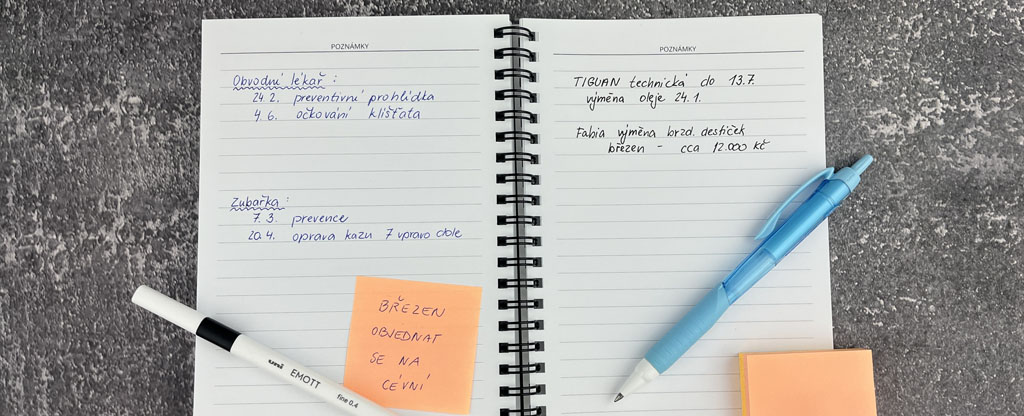 POZNÁMKY
Obvodní lékař:
24.2. preventivní prohlídka
4.6. očkování klíšťata
Zubařka:
7.3. prevence
20.4. oprava kazu 7 vpravo dole
BŘEZEN
OBJEDNAT
SE NA
CÉVNÍ
uni EMOTT fine 0.4
POZNÁMKY
TIGUAN technická do 13.7.
výměna oleje 24.1.
Fabia výměna brzd. destiček
březen - cca 12.000 Kč